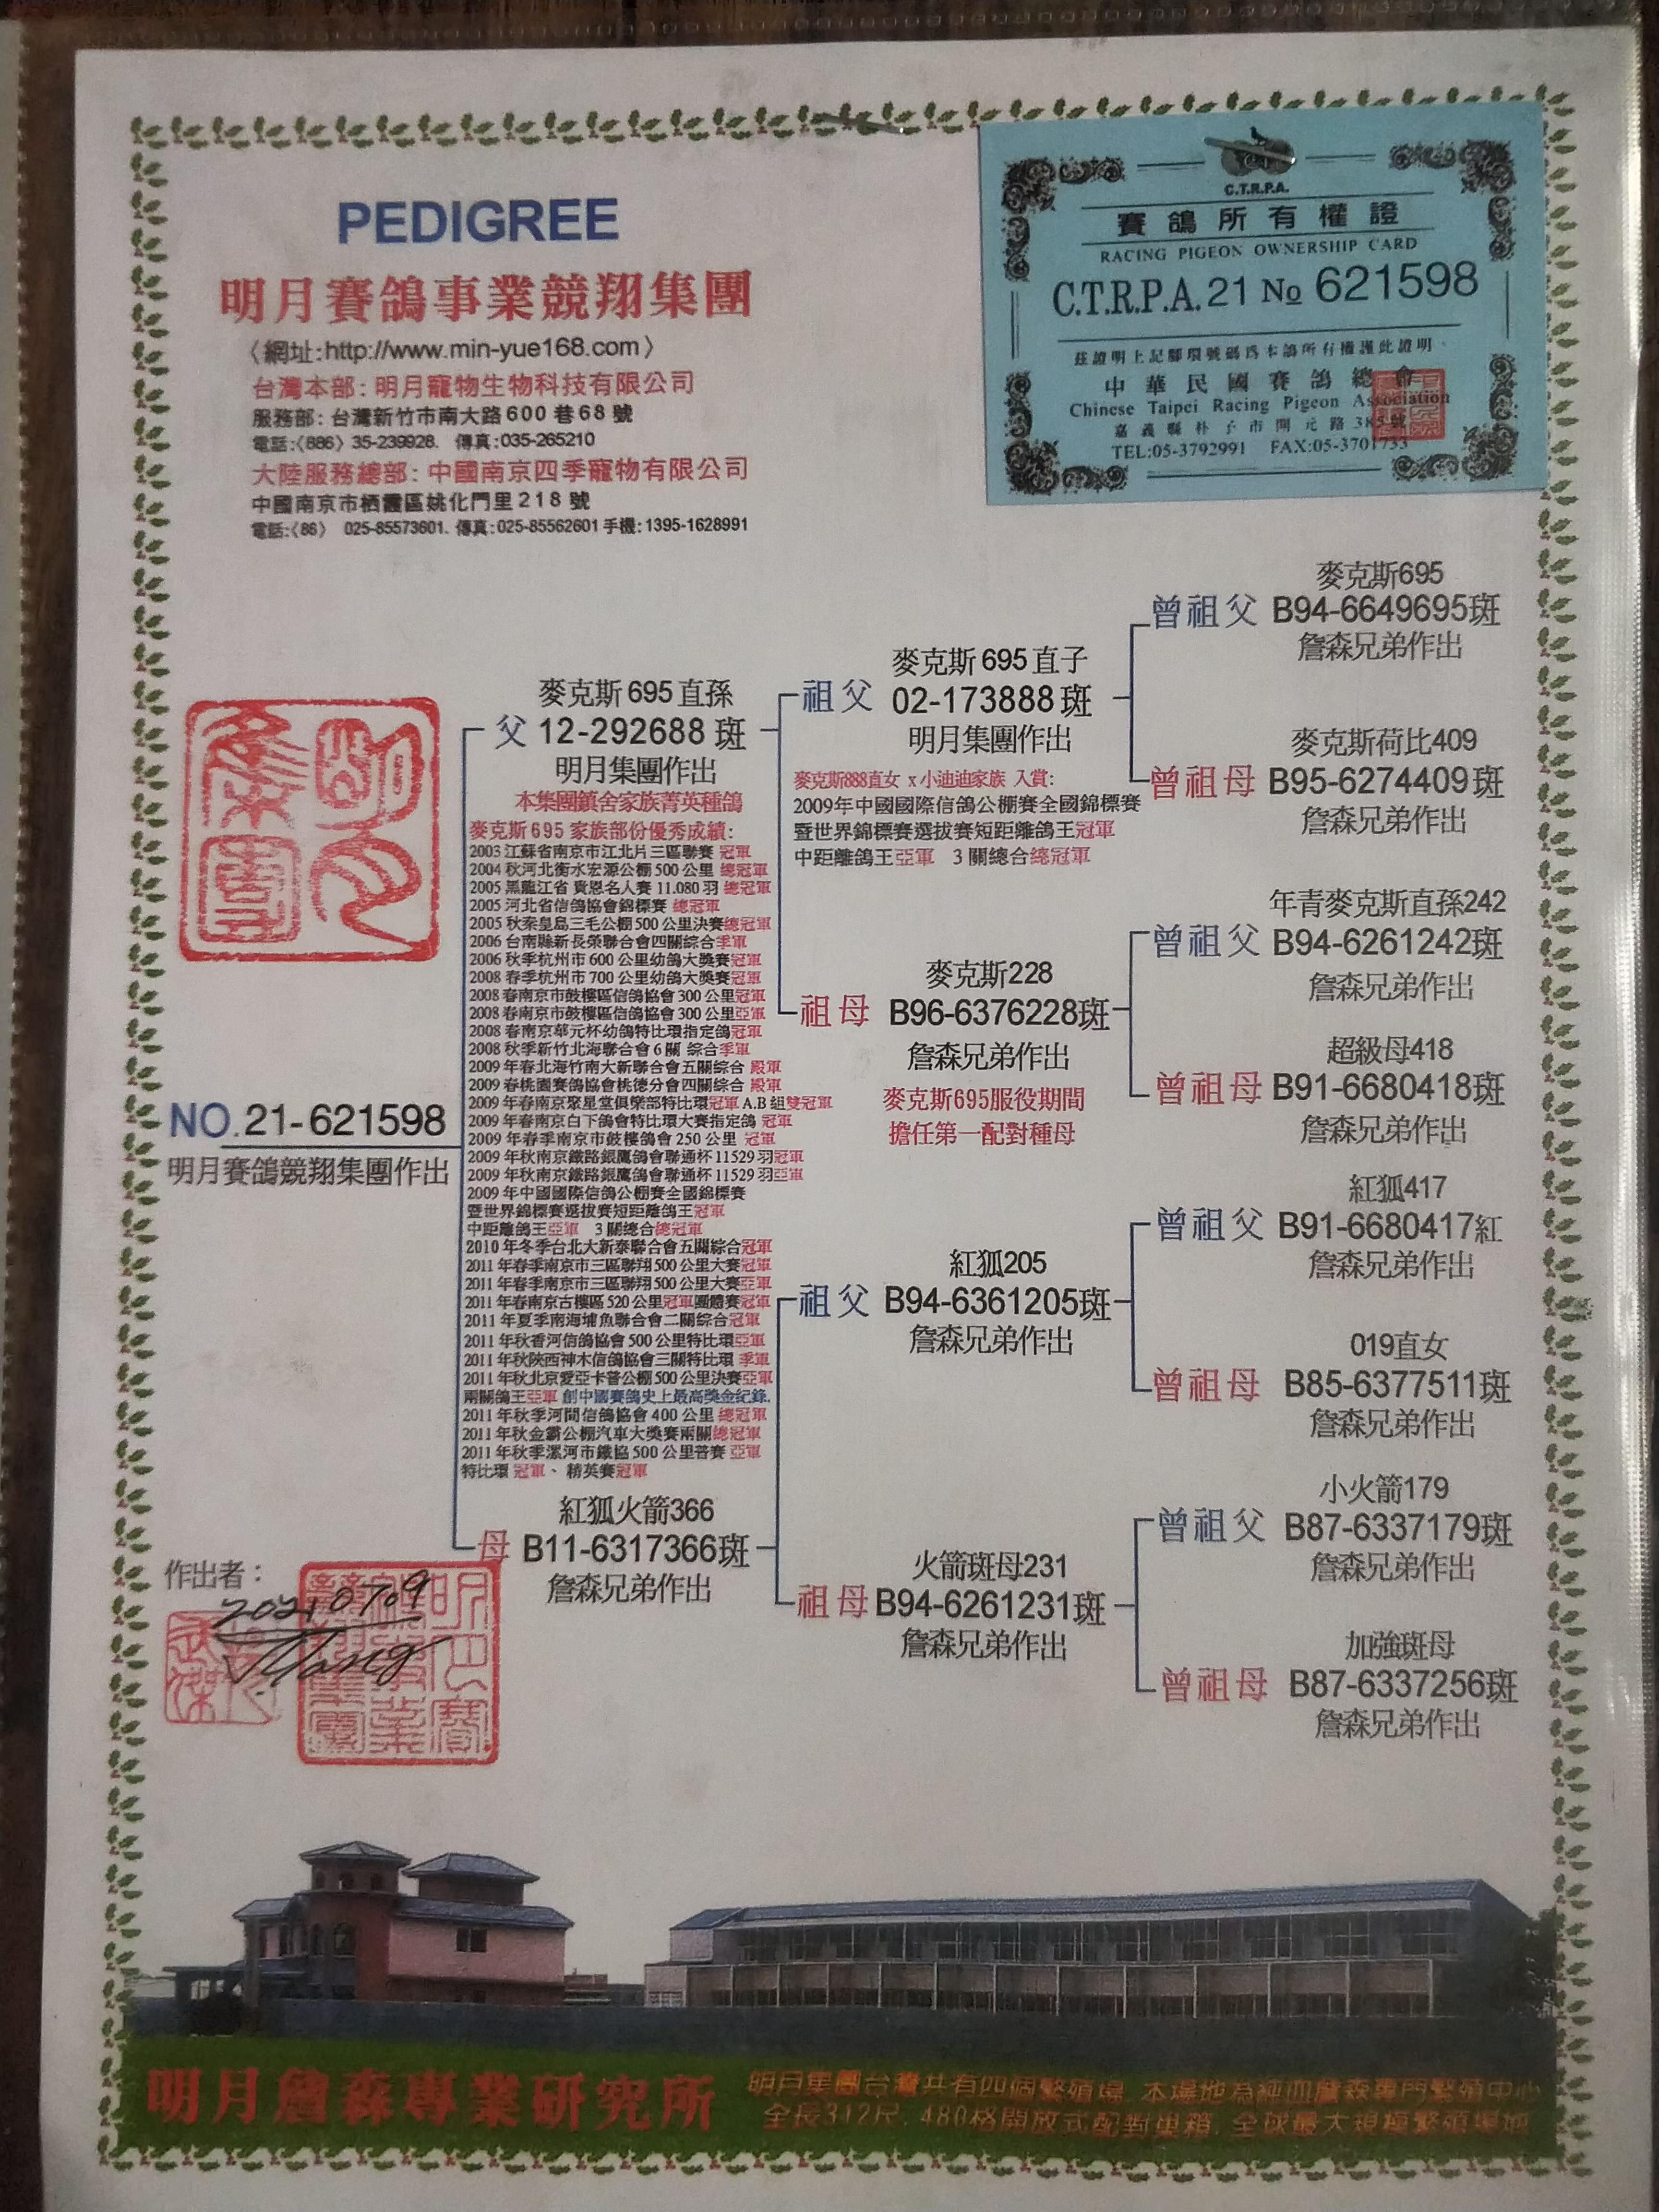 PEDIGREE
明月賽鴿事業競翔集團
〈網址:http://www.min-yue168.com〉
台灣本部: 明月寵物生物科技有限公司
服務部: 台灣新竹市南大路600巷68號
電話:〈886〉35-239928. 傳真:035-265210
大陸服務總部: 中國南京四季寵物有限公司
中國南京市栖霞區姚化門里218號
電話:〈86〉 025-85573601. 傳真:025-85562601 手機:1395-1628991
C.T.R.P.A.
賽鴿所有權證
RACING PIGEON OWNERSHIP CARD
C.T.R.P.A. 21 No 621598
茲證明上記腳環號碼爲本鴿所有權謹此證明.
中華民國賽鴿總會
Chinese Taipei Racing Pigeon Association
嘉義縣朴子市開元路385號
TEL:05-3792991 FAX:05-3701733
NO.21-621598
明月賽鴿競翔集團作出
麥克斯695直孫
父 12-292688斑
明月集團作出
本集團鎮舍家族菁英種鴿
麥克斯695 家族部份優秀成績:
2003 江蘇省南京市江北片三區聯賽 冠軍
2004 秋河北衡水宏源公棚500公里 總冠軍
2005 黑龍江省 貴恩名人賽 11.080 羽 總冠軍
2005 河北省信鴿協會錦標賽 總冠軍
2005 秋秦皇島三毛公棚500公里決賽總冠軍
2006 台南縣新長榮聯合會四關綜合季軍
2006 秋季杭州市600公里幼鴿大獎賽冠軍
2008 春季杭州市700公里幼鴿大獎賽冠軍
2008 春南京市鼓樓區信鴿協會300公里冠軍
2008 春南京市鼓樓區信鴿協會300公里亞軍
2008 春南京華元杯幼鴿特比環指定鴿冠軍
2008 秋季新竹北海聯合會6關 綜合季軍
2009 年春北海竹南大新聯合會五關綜合 殿軍
2009 春桃園賽鴿協會桃德分會四關綜合 殿軍
2009 年春南京聚星堂俱樂部特比環冠軍 A.B 組雙冠軍
2009 年春南京白下鴿會特比環大賽指定鴿 冠軍
2009 年春季南京市鼓樓鴿會250公里 冠軍
2009 年秋南京鐵路銀鷹鴿會聯通杯11529羽冠軍
2009 年秋南京鐵路銀鷹鴿會聯通杯11529羽亞軍
2009 年中國國際信鴿公棚賽全國錦標賽
暨世界錦標賽選拔賽短距離鴿王冠軍
中距離鴿王亞軍 3關總合總冠軍
2010 年冬季台北大新泰聯合會五關綜合冠軍
2011 年春季南京市三區聯翔500公里大賽冠軍
2011 年春季南京市三區聯翔500公里大賽亞軍
2011 年春南京古樓區520公里冠軍團體賽冠軍
2011 年夏季南海埔魚聯合會二關綜合冠軍
2011 年秋香河信鴿協會500公里特比環亞軍
2011 年秋陝西神木信鴿協會三關特比環 季軍
2011 年秋北京愛亞卡普公棚500公里決賽亞軍
兩關鴿王亞軍 創中國賽鴿史上最高獎金紀錄.
2011 年秋季河間信鴿協會400公里 總冠軍
2011 年秋金霸公棚汽車大獎賽兩關總冠軍
2011 年秋季漯河市鐵協500公里普賽 亞軍
特比環 冠軍、精英賽冠軍
紅狐火箭366
母 B11-6317366斑
詹森兄弟作出
麥克斯695直子
祖父 02-173888斑
明月集團作出
麥克斯888直女 x 小迪迪家族 入賞:
2009年中國國際信鴿公棚賽全國錦標賽
暨世界錦標賽選拔賽短距離鴿王冠軍
中距離鴿王亞軍 3關總合總冠軍
麥克斯228
祖母 B96-6376228斑
詹森兄弟作出
麥克斯695服役期間
擔任第一配對種母
紅狐205
祖父 B94-6361205斑
詹森兄弟作出
火箭斑母231
祖母 B94-6261231斑
詹森兄弟作出
麥克斯695
曾祖父 B94-6649695斑
詹森兄弟作出
麥克斯荷比409
曾祖母 B95-6274409斑
詹森兄弟作出
年青麥克斯直孫242
曾祖父 B94-6261242斑
詹森兄弟作出
超級母418
曾祖母 B91-6680418斑
詹森兄弟作出
紅狐417
曾祖父 B91-6680417紅
詹森兄弟作出
019直女
曾祖母 B85-6377511斑
詹森兄弟作出
小火箭179
曾祖父 B87-6337179斑
詹森兄弟作出
加強斑母
曾祖母 B87-6337256斑
詹森兄弟作出
作出者:
2021.07.9
明月詹森專業研究所
明月集團台灣共有四個繁殖場, 本場地為純血詹森專門繁殖中心
全長312尺, 480格開放式配對巢箱, 全球最大規模繁殖場地